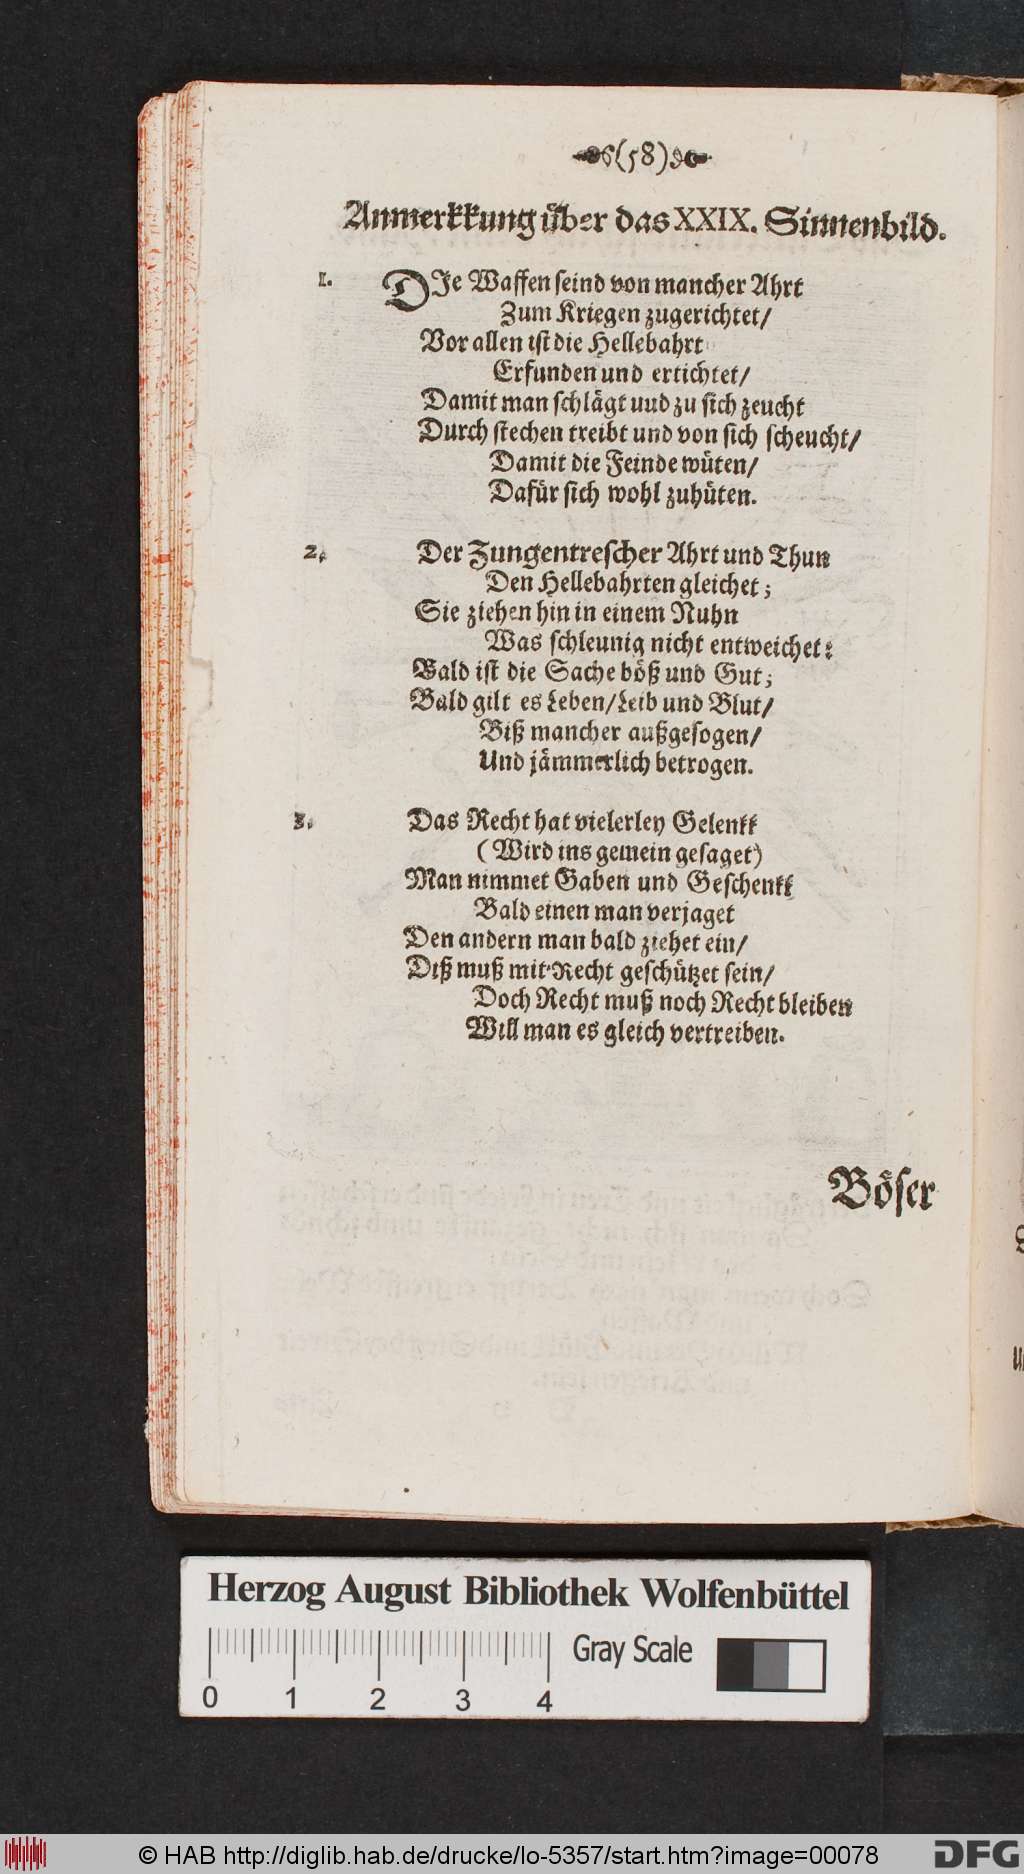 (58)
Anmerkkung über das XXIX. Sinnenbild.
1. DIe Waffen seind von mancher Ahrt
Zum Kriegen zugerichtet/
Vor allen ist die Hellebahrt
Erfunden und ertichtet/
Damit man schlägt uud zu sich zeucht
Durch stechen treibt und von sich scheucht/
Damit die Feinde wüten/
Dafür sich wohl zuhüten.
2. Der Zungentrescher Ahrt und Thun
Den Hellebahrten gleichet;
Sie ziehen hin in einem Nuhn
Was schleunig nicht entweichet:
Bald ist die Sache böß und Gut;
Bald gilt es Leben/Leib und Blut/
Biß mancher außgesogen/
Und jämmerlich betrogen.
3. Das Recht hat vielerley Gelenkk
(Wird ins gemein gesaget)
Man nimmet Gaben und Geschenkk
Bald einen man verjaget
Den andern man bald ziehet ein/
Diß muß mit Recht geschützet sein/
Doch Recht muß noch Recht bleiben
Will man es gleich vertreiben.
Böser
Herzog August Bibliothek Wolfenbüttel
Gray Scale
0 1 2 3 4
© HAB http://diglib.hab.de/drucke/lo-5357/start.htm?image=00078
DFG